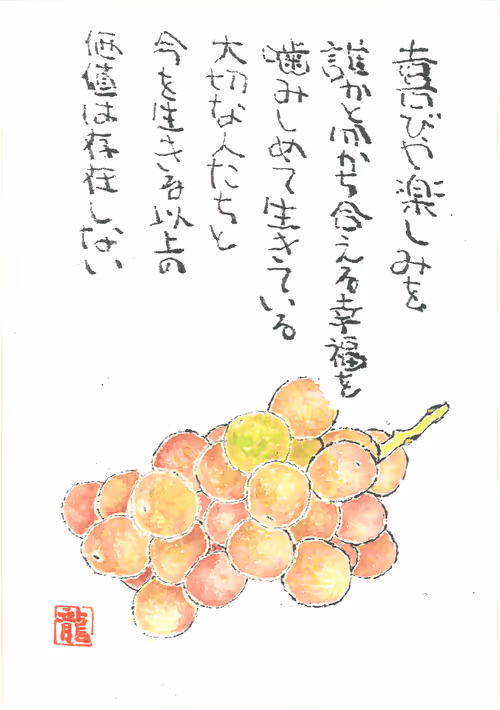 喜びや楽しみを
誰かと分かち合える幸福を
噛みしめて生きている
大切な人たちと
今を生きる以上の
価値は存在しない
龍